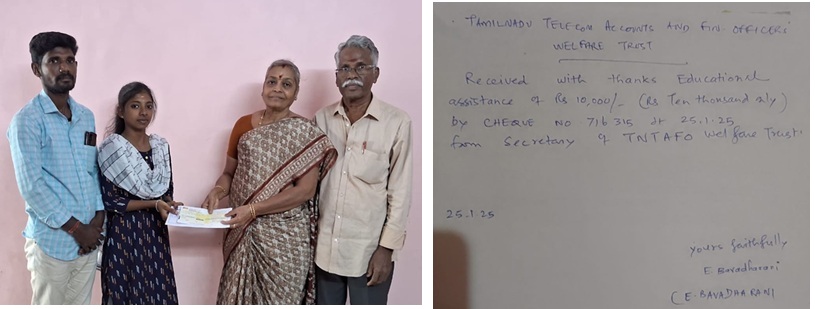 TAMILNADU TELECOM ACCOUNTS AND FIN. OFFICERS
WELFARE TRUST
Received with thanks Educational
assistance of Rs 10,000/- (Rs Ten thousand only)
by CHEQUE NO 716315 dt 25.1.25
from Secretary of TNTAFO Welfare Trust.
25.1.25
yours faithfully
E. Bavadharani
(E. BAVADHARANI